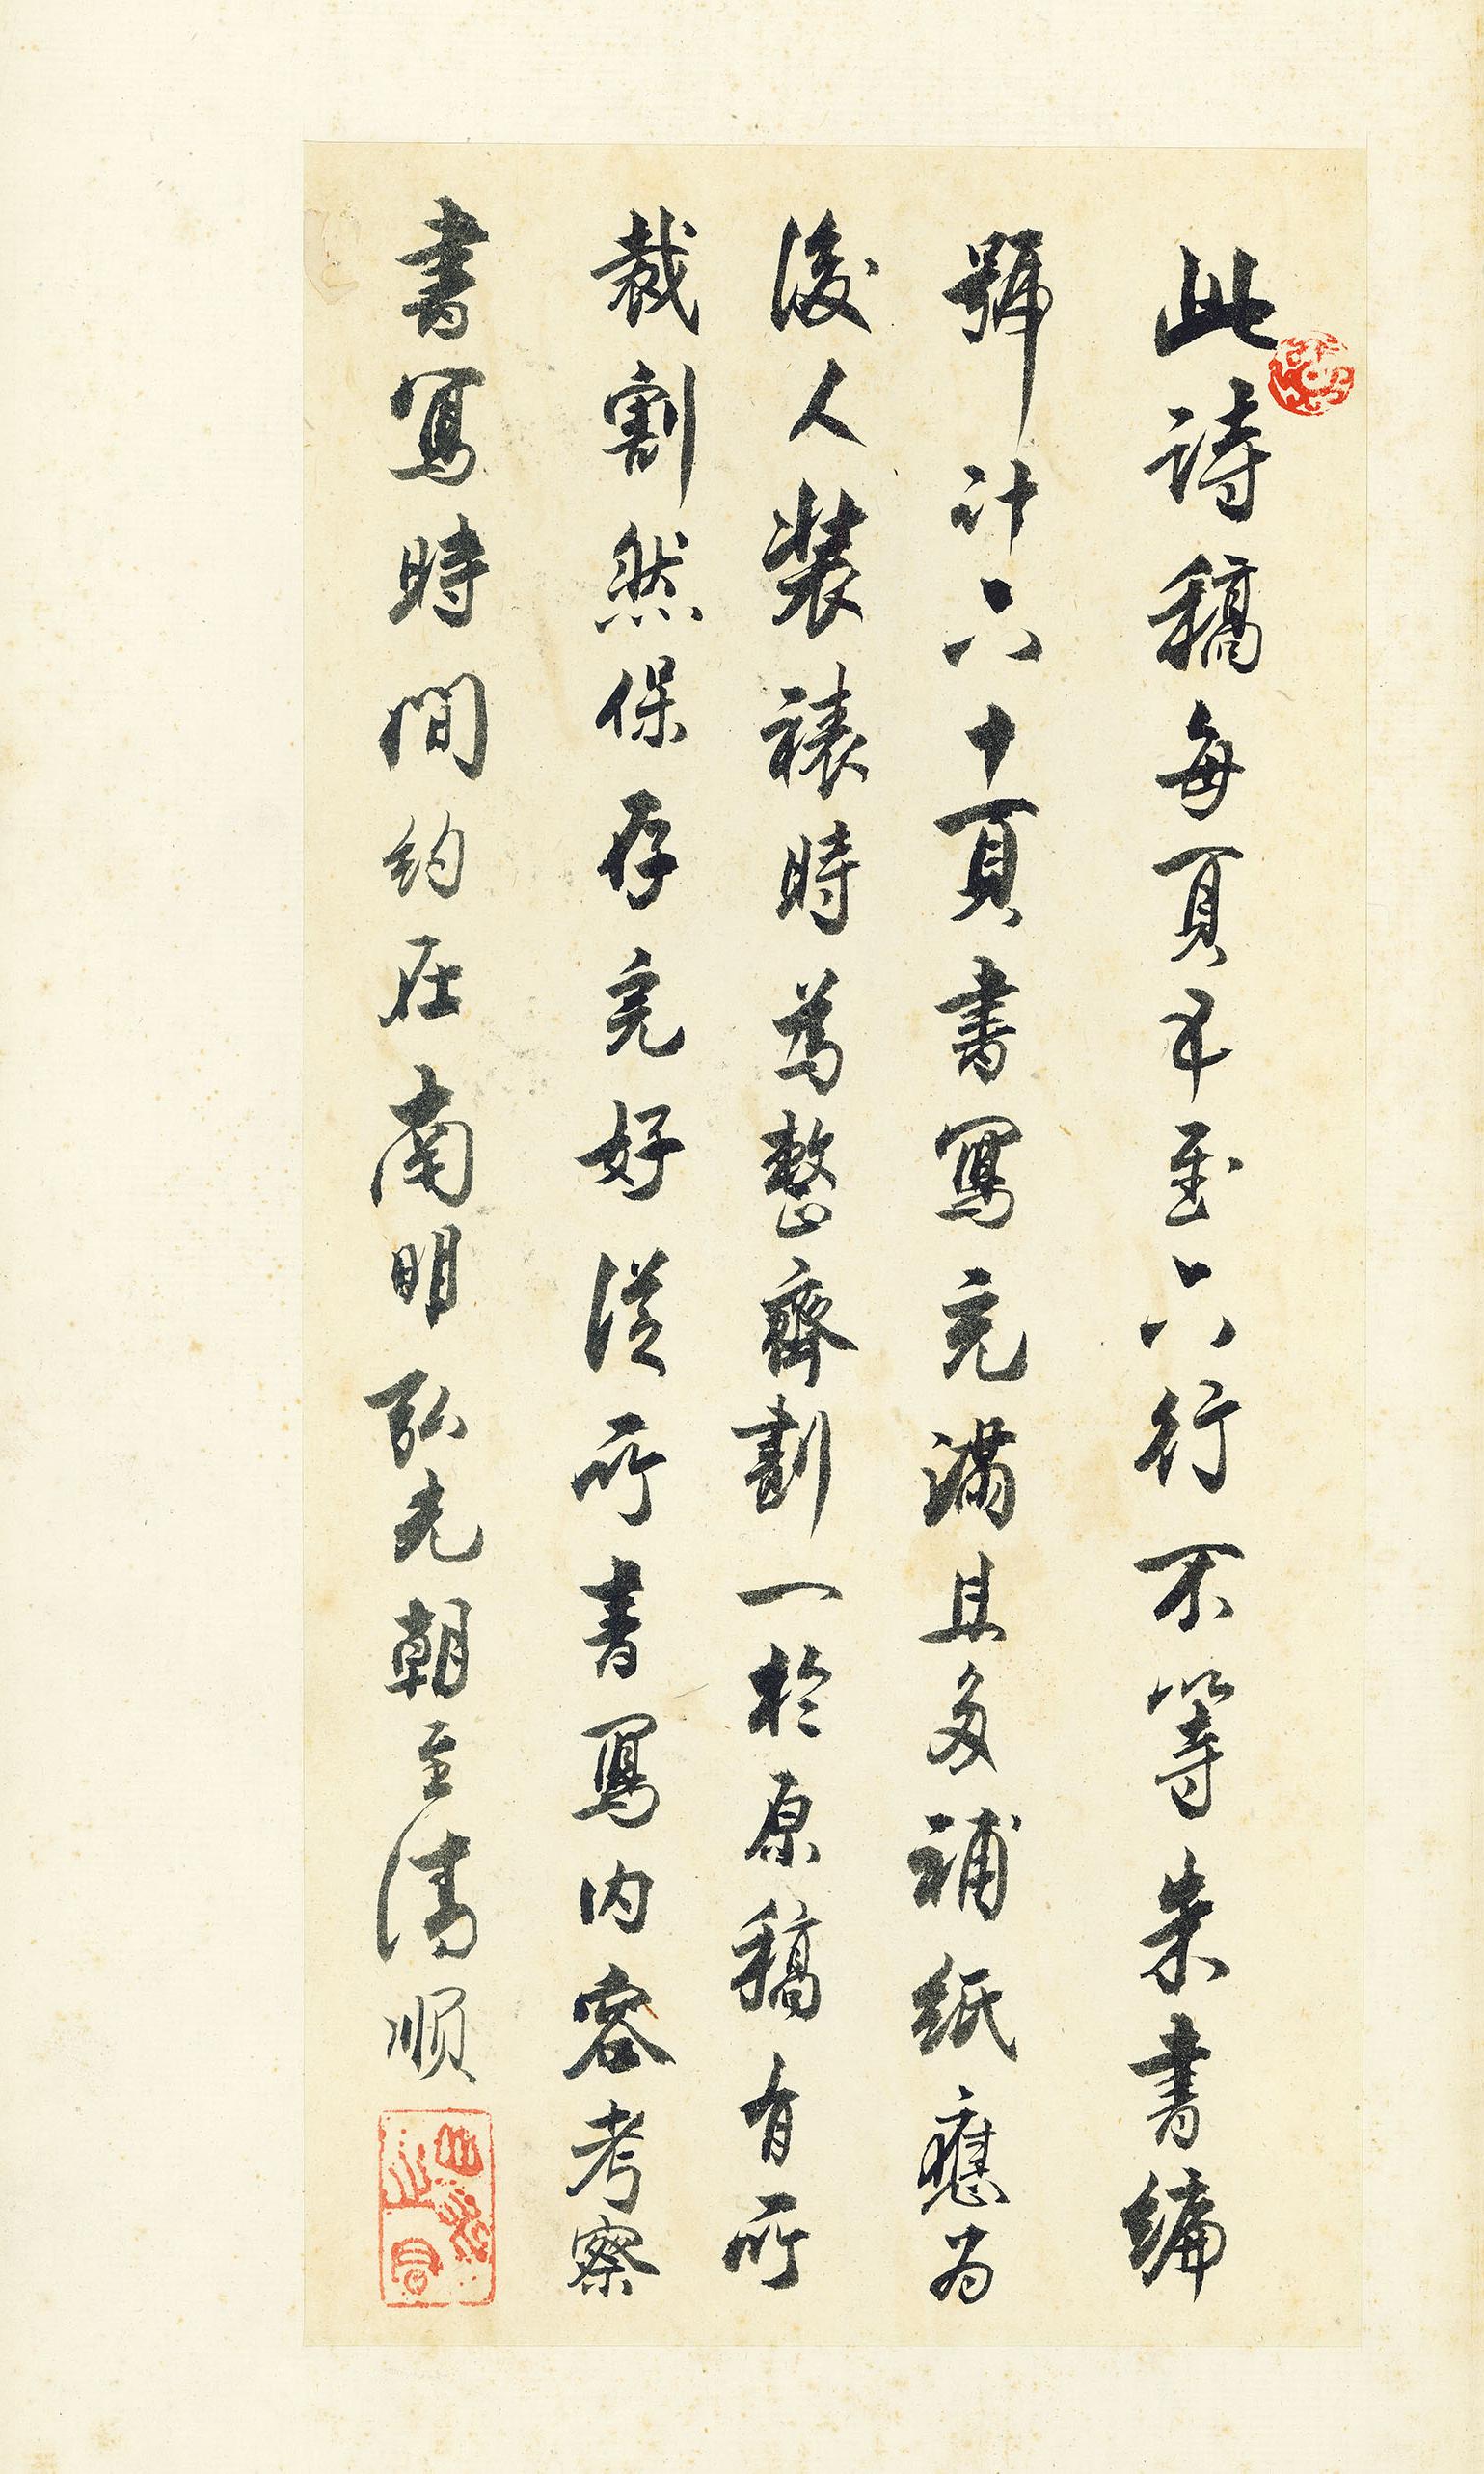 此詩稿每頁五至六行不等朱書編
號計六十頁書寫充滿且多補紙應为
後人裝裱時为整齊劃一於原稿有所
裁割然保存完好從所書寫內容考察
書寫時間約在南明弘光朝至清順